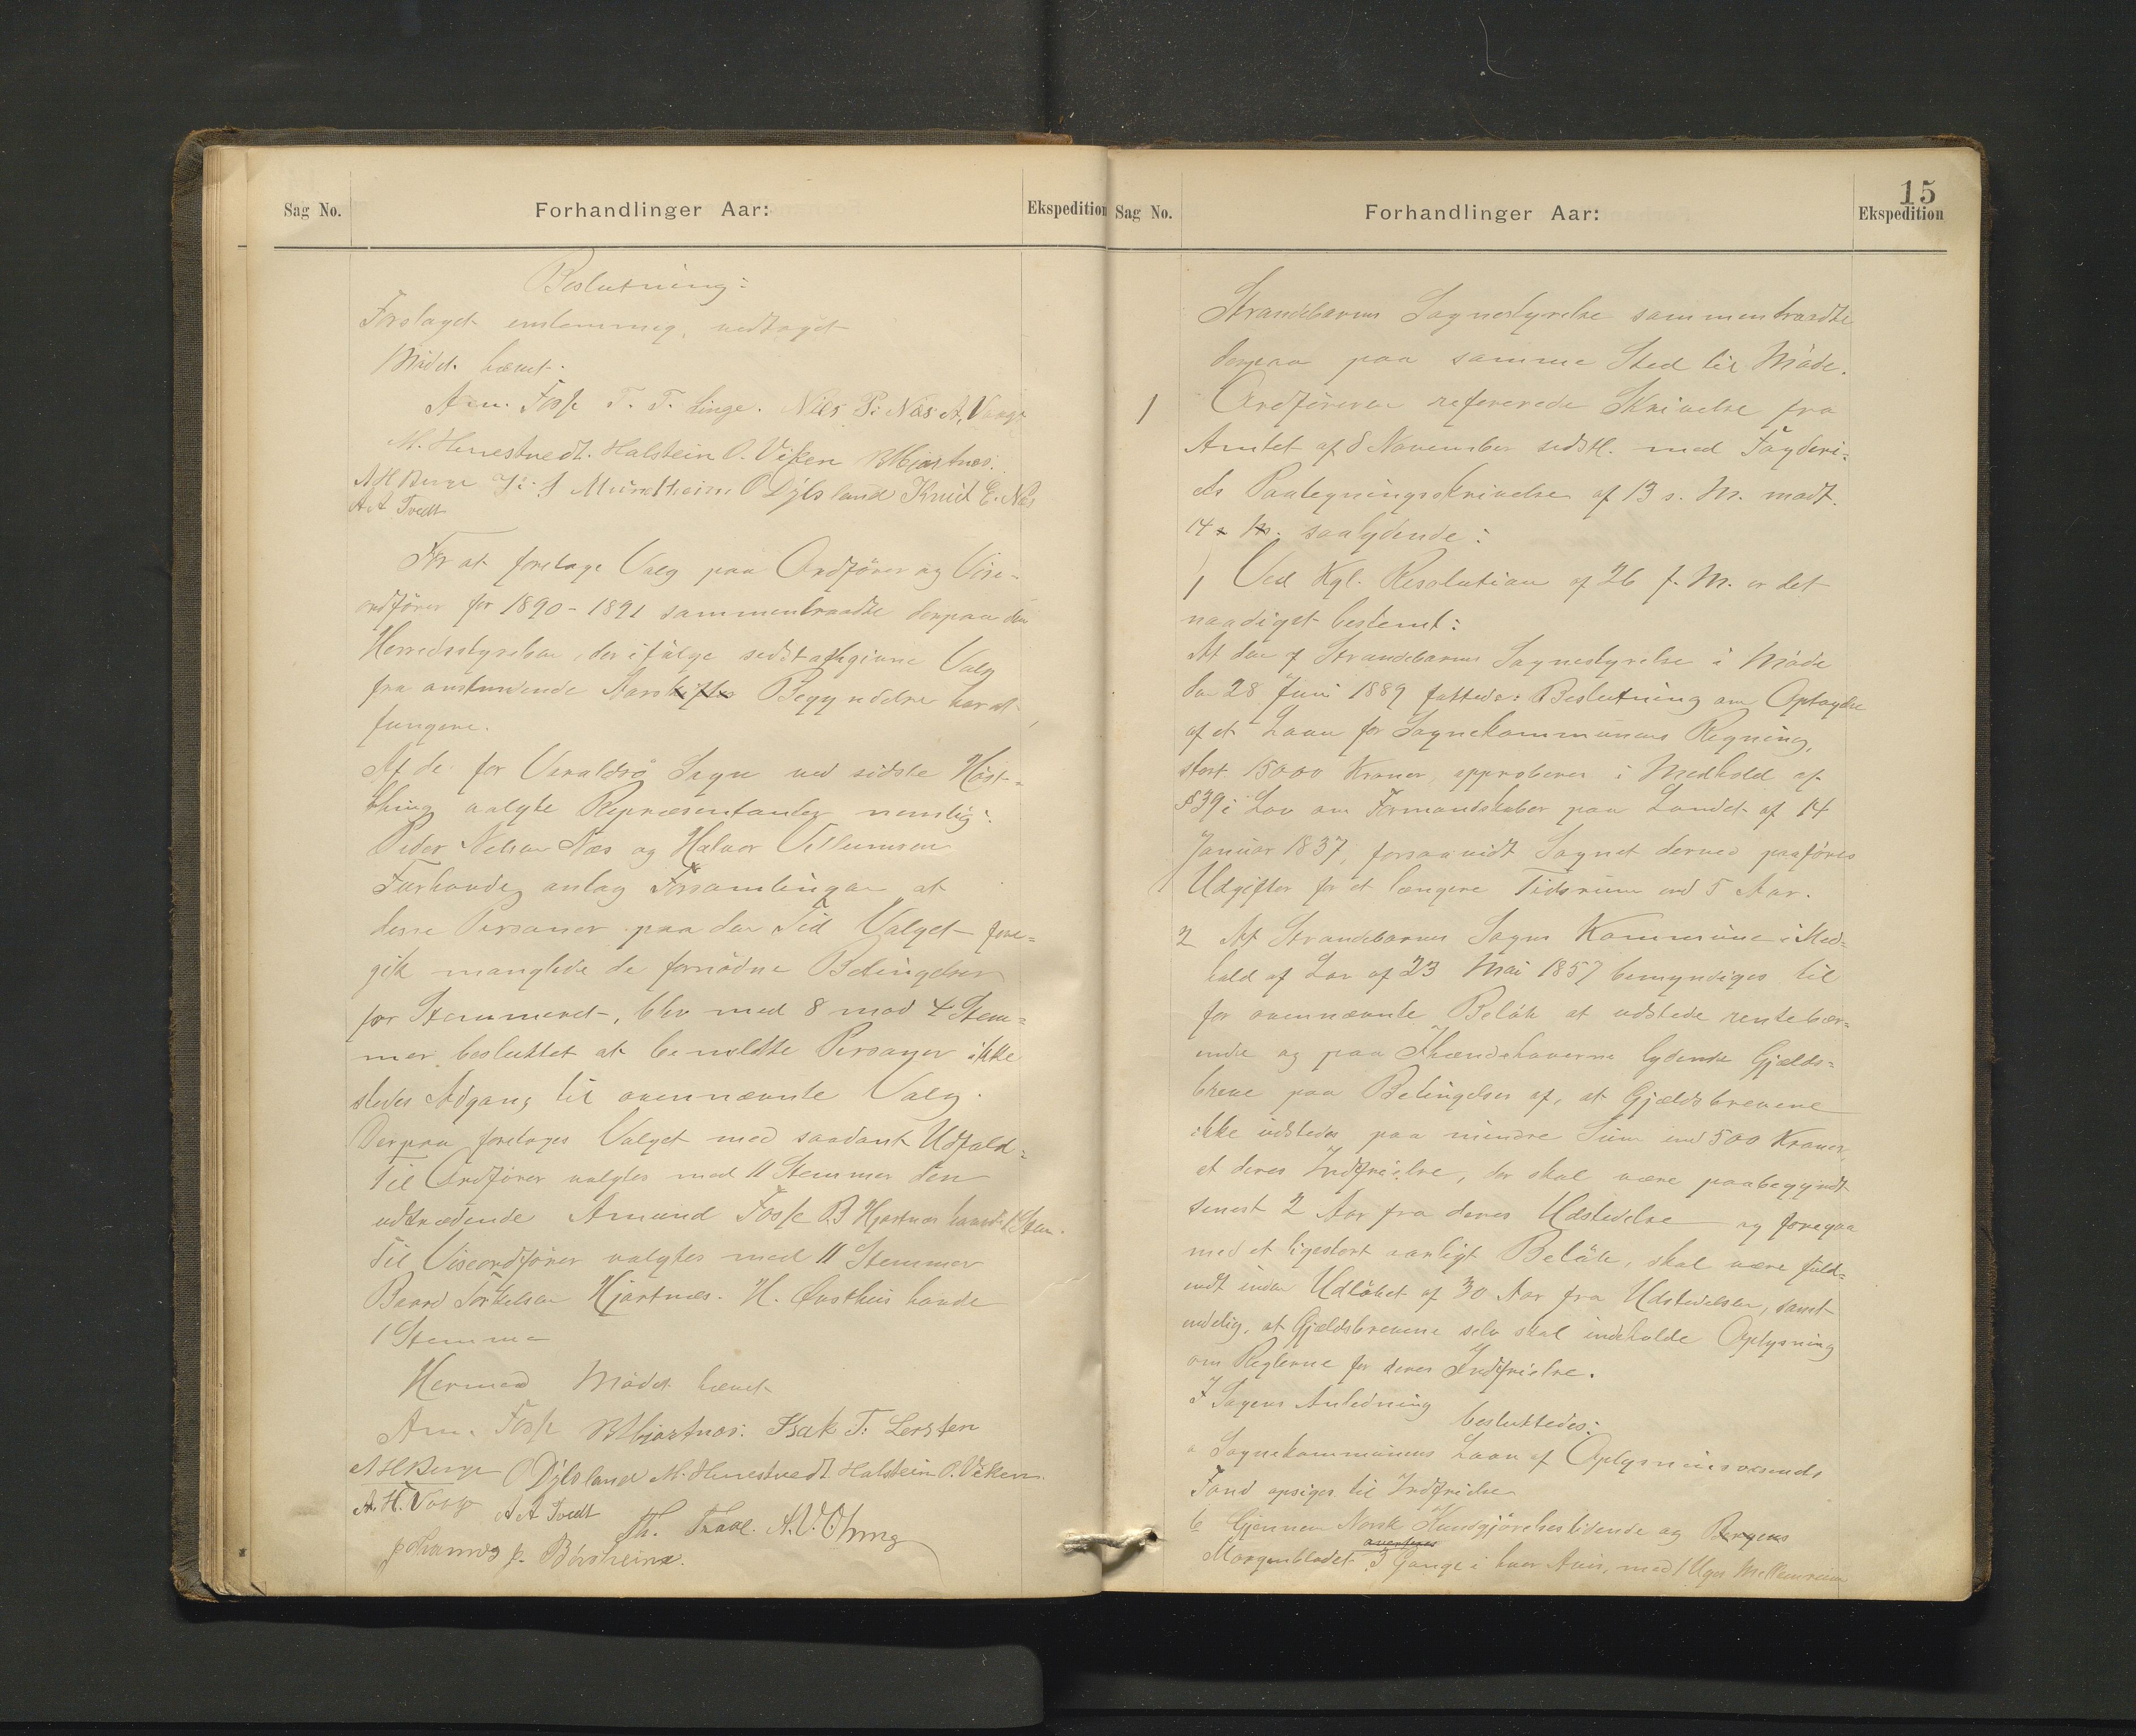 Sag No.
Forhandlinger Aar:
Ekspedition
Beslutning:
Forslaget enstemmig vedtaget
Mödet hævet.
Am. Fosse T. T. Linge. Nils P: Næs A,
M. Hennestvedt. Halstein O. Viken BHjartnæs.
AHBerge Mundheim O Dÿlsland Knut E. Næs
A A Tvedt
For at foretage Valg paa Ordförer og Vise-
ordförer for 1890-1891 sammentraadte derpaa den
Herredsstyrelse, der ifölge sidst afhgivne Valg
fra anstundende Aarskiftes Begyndelse har at
fungere.
Af de for Varaldsö Sogn ved sidste Höst-
thing valgte Repræsentanter nemlig:
Peder Nelsen Næs og Halvor Villumsen
Furhovde, antog Forsamlingen at
desse Personer paa den Tid Valget fore=
gik manglede de fornödne Betingelser
for Stemmeret, blev med 8 mod 4 Stem=
mer besluttet at bemeldte Personer ikke
stedes Adgang til ovennævnte Valg.
Derpaa foretoges Valget med saadant Udfald:
Til Ordförer valgtes med 11 Stemmer den
udtrædende Amund Fosse B Hjartnæs havde 1 Stem.
Til Viseordförer valgtes med 11 Stemmer
Baard Torkelsen Hjartnæs. H. Øvsthus havde
1 Stemme
Hermed Mödet hævet
Am. Fosse BHjartnæs: Isak T: Lersten
AHBerge O Dÿlsland M. Hennestvedt Halstein O. Viken.
A. H. A A Tvedt Th. A. V.
Johannes J. Börsheim.
15
Sag No.
Forhandlinger Aar:
Ekspedition
Strandebarms Sognestyrelse sammentraadte
derpaa paa samme Sted til Möde.
1 Ordföreren refererede Skrivelse fra
Amtet af 8 November sidstl. med Fogderi=
ets Paategningsskrivelse af 13 s. M. modt.
14 s. M. saalydende:
1 Ved Kgl. Resolution af 26 f. M. er det
naadigst bestemt:
At den af Strandebarms Sognestyrelse i Möde
den 28 Juni 1889 fattede Beslutning om Optagelse
af et Laan for Sognekommunens Regning,
stort 15000 Kroner, approberes i Medhold af
§ 39 i Lov om Formandskaber paa Landet af 14
Januar 1837, forsaavidt Sognet derved paaföres
Udgifter for et længere Tidsrum end 5 Aar.
2 At Strandebarms Sogns Kommune i Med=
hold af Lov af 23 Mai 1857 bemyndiges til
for ovennævnte Belöb at udstede rentebær=
ende og paa Ihændehaverne lydende Gjælds=
breve paa Betingelser af, at Gjældsbrevene
ikke udstedes paa mindre Sum end 500 Kroner,
at deres Indfrielse, der skal være paabegyndt
senest 2 Aar fra deres Udstedelse og foregaa
med et ligestort aarligt Belöb, skal være fuld=
endt inden Udlöbet af 30 Aar fra Udstedelsen, samt
endelig, at Gjældsbrevene selv skal indeholde Oplysning
om Reglerne for deres Indfrielse.
I Sagens Anledning
besluttedes:
a Sognekommunens Laan af Oplysningsvæsenets
Fond opsiges til Indfrielse
b Gjennem Norsk Kundgjörelsestidende og Bergens
Morgenbladet averteres 3 Gange i hver Avis, med 1 Uges Mellemrum